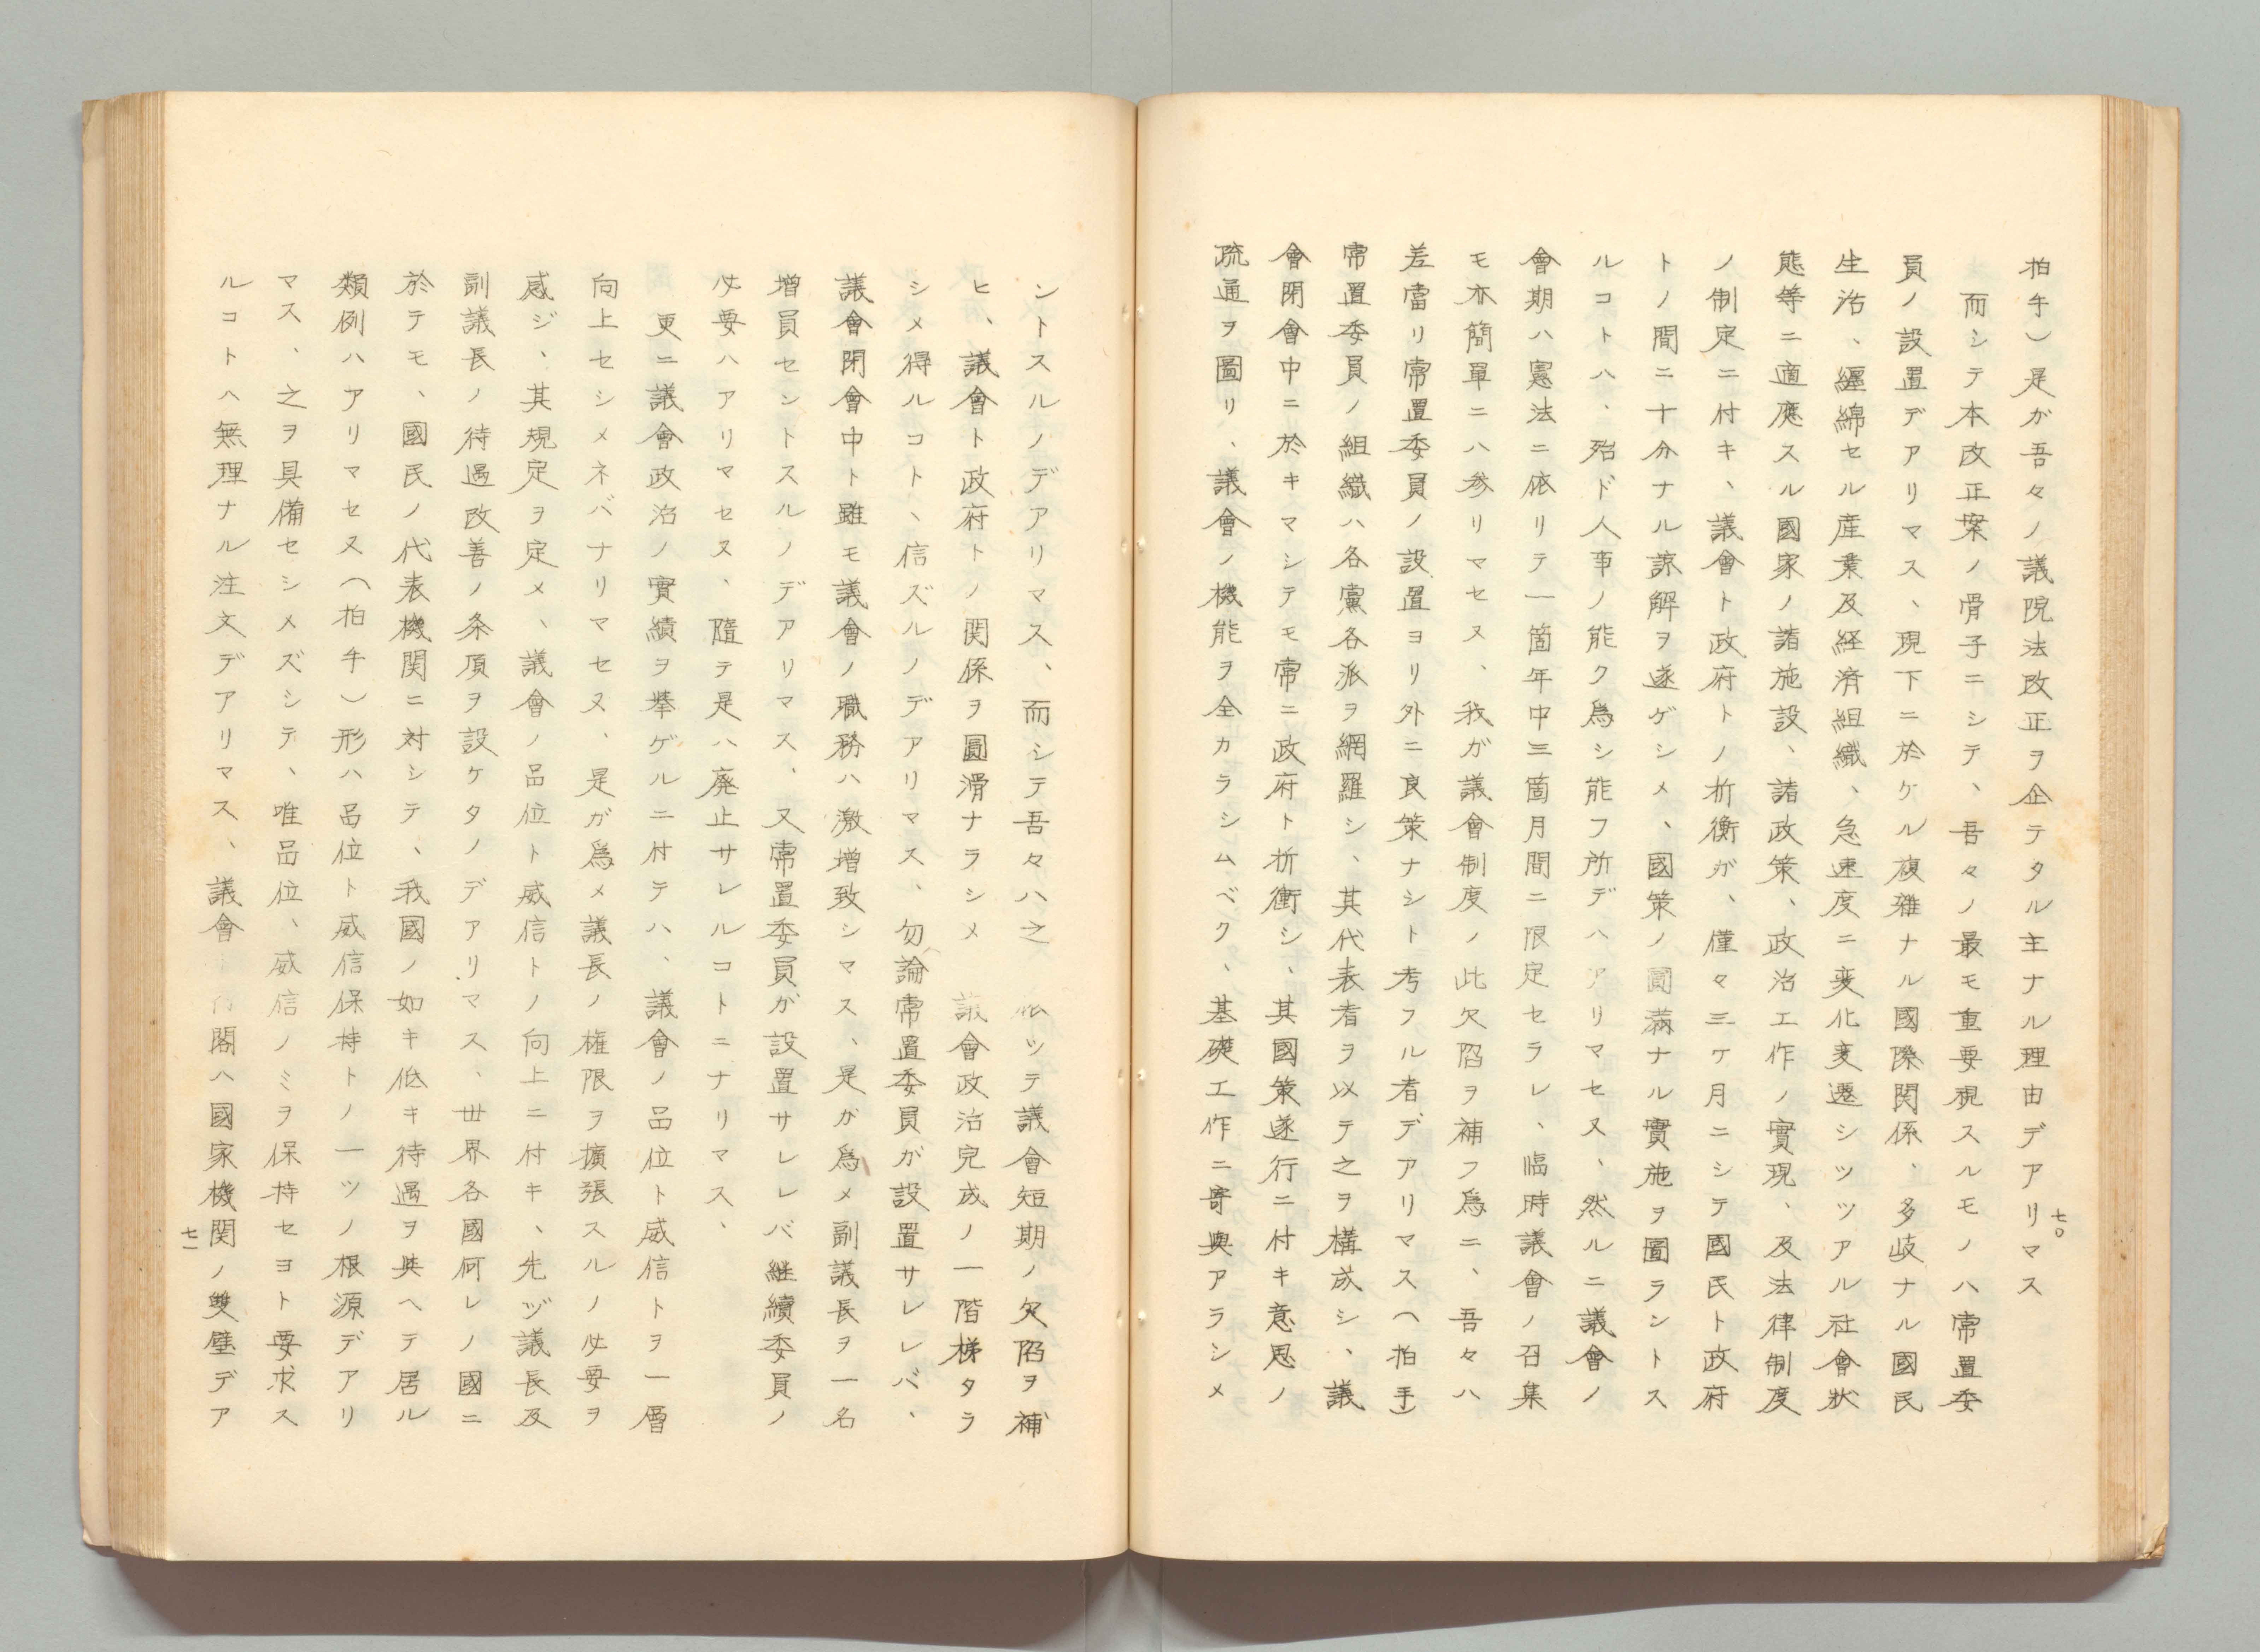 拍手)是ガ吾々ノ議院法改正ヲ企テタル主ナル理由デアリマス
而シテ本改正案ノ骨子ニシテ、吾々ノ最モ重要視スルモノハ常置委
員ノ設置デアリマス、現下ニ於ケル複雜ナル國際関係、多岐ナル國民
生活、纒綿セル産業及経済組織、急速度ニ変化変遷シツツアル社會狀
態等ニ適應スル國家ノ諸施設、諸政策、政治工作ノ實現、及法律制度
ノ制定ニ付キ、議會ト政府トノ折衡ガ、僅々三ケ月ニシテ國民ト政府
トノ間ニ十分ナル諒解ヲ遂ゲシメ、國策ノ圓滿ナル實施ヲ圖ラントス
ルコトハ、殆ド人事ノ能ク爲シ能フ所デハアリマセヌ、然ルニ議會ノ
會期ハ憲法ニ依リテ一箇年中三箇月間ニ限定セラレ、臨時議會ノ召集
モ亦簡單ニハ参リマセヌ、我ガ議會制度ノ此欠陷ヲ補フ爲ニ、吾々ハ
差當リ常置委員ノ設置ヨリ外ニ良策ナシト考フル者デアリマス(拍手)
常置委員ノ組織ハ各黨各派ヲ網羅シ、其代表者ヲ以テ之ヲ構成シ、議
會閉會中ニ於キマシテモ常ニ政府ト折衝シ、其國策遂行ニ付キ意思ノ
疏通ヲ圖リ、議會ノ機能ヲ全カラシムベク、基礎工作ニ寄與アラシメ
七〇
ントスルノデアリマス、而シテ吾々ハ之ニ依ツテ議會短期ノ欠陷ヲ補
ヒ、議會ト政府トノ関係ヲ圓滑ナラシメ 議會政治完成ノ一階梯タラ
シメ得ルコト、信ズルノデアリマス、勿論常置委員が設置サレレバ、
議會閉會中ト雖モ議會ノ職務ハ激增致シマス、是ガ爲メ副議長ヲ一名
增員セントスルノデアリマス、又常置委員ガ設置サレレバ継續委員ノ
必要ハアリマセヌ、隨テ是ハ廃止サレルコトニナリマス、
更ニ議會政治ノ實績ヲ擧ゲルニ付テハ、議會ノ品位ト威信トヲ一層
向上セシメネバナリマセヌ、是ガ爲メ議長ノ権限ヲ擴張スルノ必要ヲ
感ジ、其規定ヲ定メ、議會ノ品位ト威信トノ向上ニ付キ、先ヅ議長及
副議長ノ待遇改善ノ条項ヲ設ケタノデアリマス、世界各國何レノ國ニ
於テモ、國民ノ代表機関ニ対シテ、我國ノ如キ低キ待遇ヲ與ヘテ居ル
類例ハアリマセヌ(拍手)形ハ品位ト威信保持トノ一ツノ根源デアリ
マス、之ヲ具備セシメズシテ、唯品位、威信ノミヲ保持セヨト要求ス
ルコトハ無理ナル注文デアリマス、議會ト内閣ハ國家機関ノ雙壁デア
七一